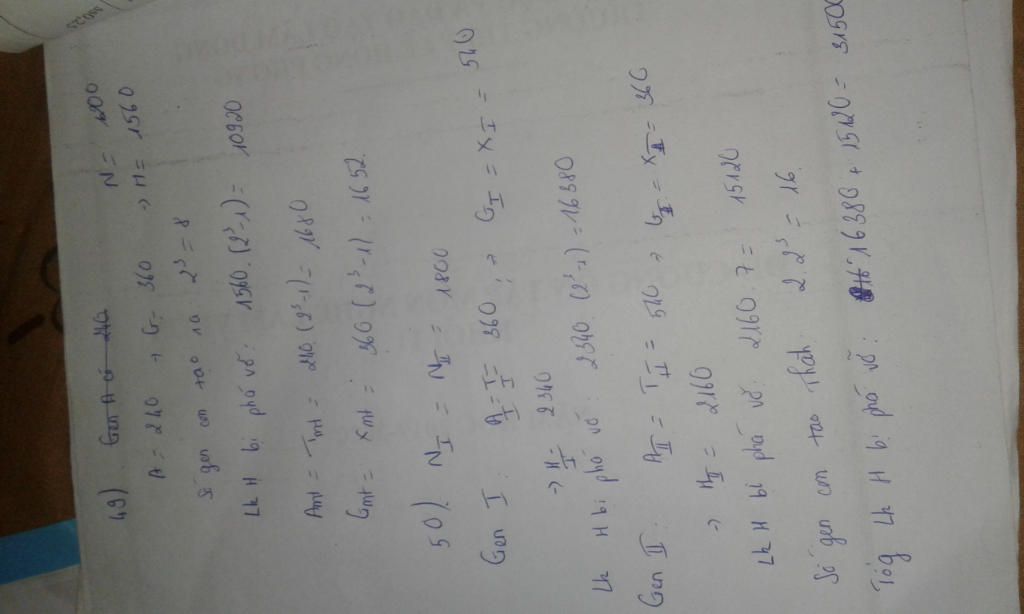 49) Gen A có 240 N = 1200
A = 240 → G = 360 → H = 1560
Số gen con tạo ra 2³ = 8
Lk H bị phá vỡ: 1560.(2³-1) = 10920
Amt = Tmt = 240.(2³-1) = 1680
Gmt = Xmt = 360(2³-1) = 1652.
50) N_I = N_II = 1800
Gen I: A_I = T_I = 360 ; → G_I = X_I = 540
→ H_I = 2340
Lk H bị phá vỡ: 2340.(2³-1) = 16380
Gen II: A_II = T_II = 540 → G_II = X_II = 360
→ H_II = 2160
Lk H bị phá vỡ: 2160.7 = 15120
Số gen con tạo thành: 2.2³ = 16.
Tổg Lk H bị phá vỡ: 16380 + 15120 = 31500